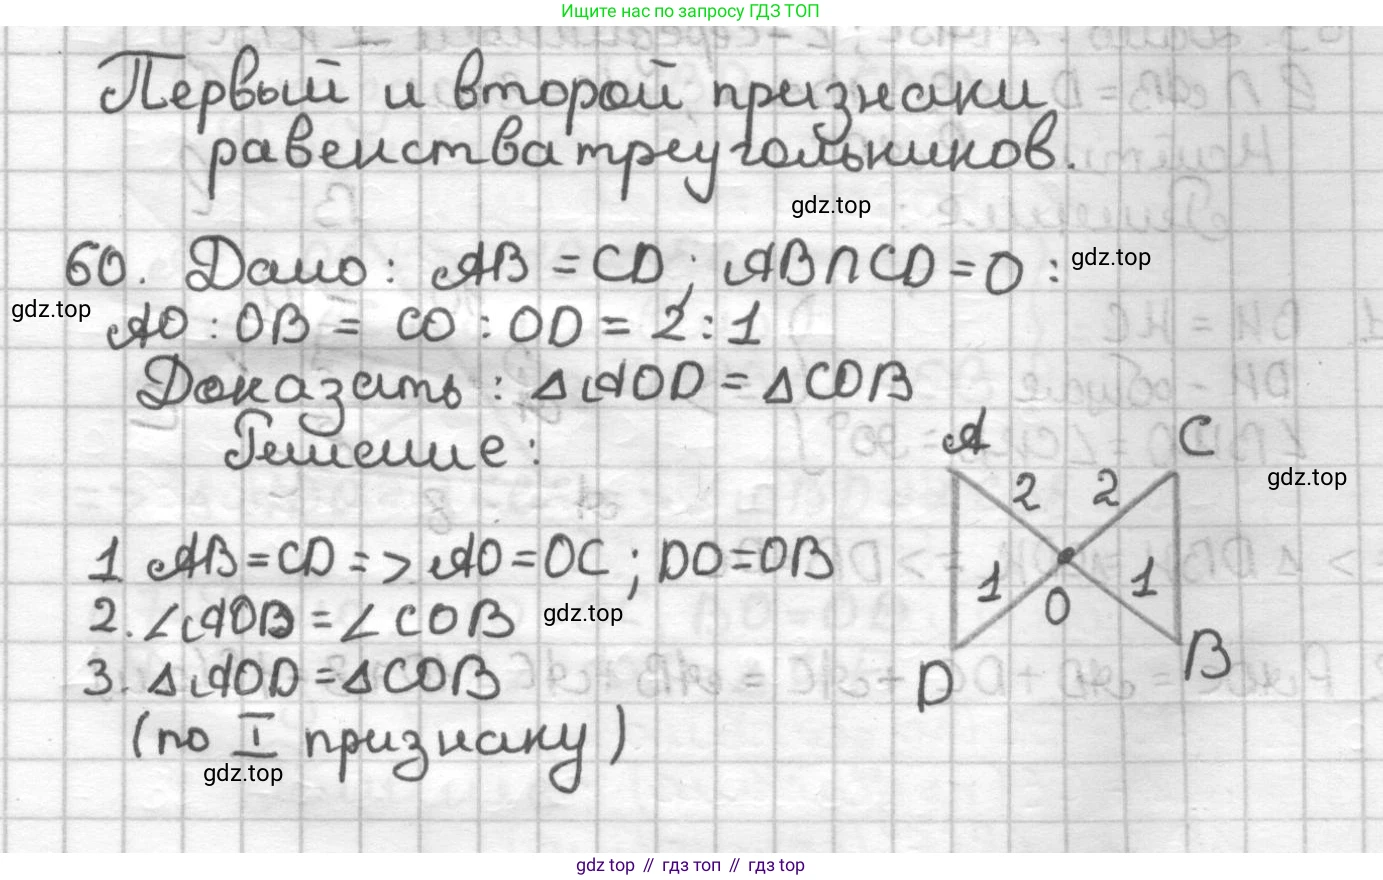 Ищите нас по запросу ГДЗ ТОП
Первый и второй признаки
равенства треугольников.
gdz.top
60. Дано: AB = CD; AB∩CD = O:
gdz.top
gdz.top
AO : OB = CO : OD = 2 : 1
Доказать: ΔAOD = ΔCOB
Решение:
A
C
gdz.top
2
2
1 AB = CD => AO = OC; DO = OB
1
1
O
2. ∠AOB = ∠COB
gdz.top
3. ΔAOD = ΔCOB
D
B
(по I признаку)
gdz.top
gdz top // гдз топ // gdz top